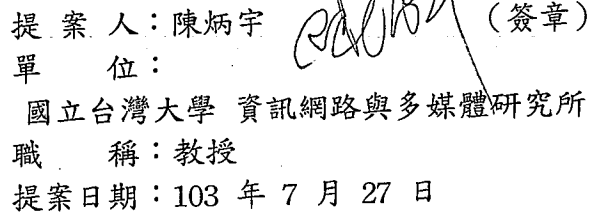 提案人：陳炳宇（簽章）
單位：
國立台灣大學 資訊網路與多媒體研究所
職稱：教授
提案日期：103 年 7 月 27 日